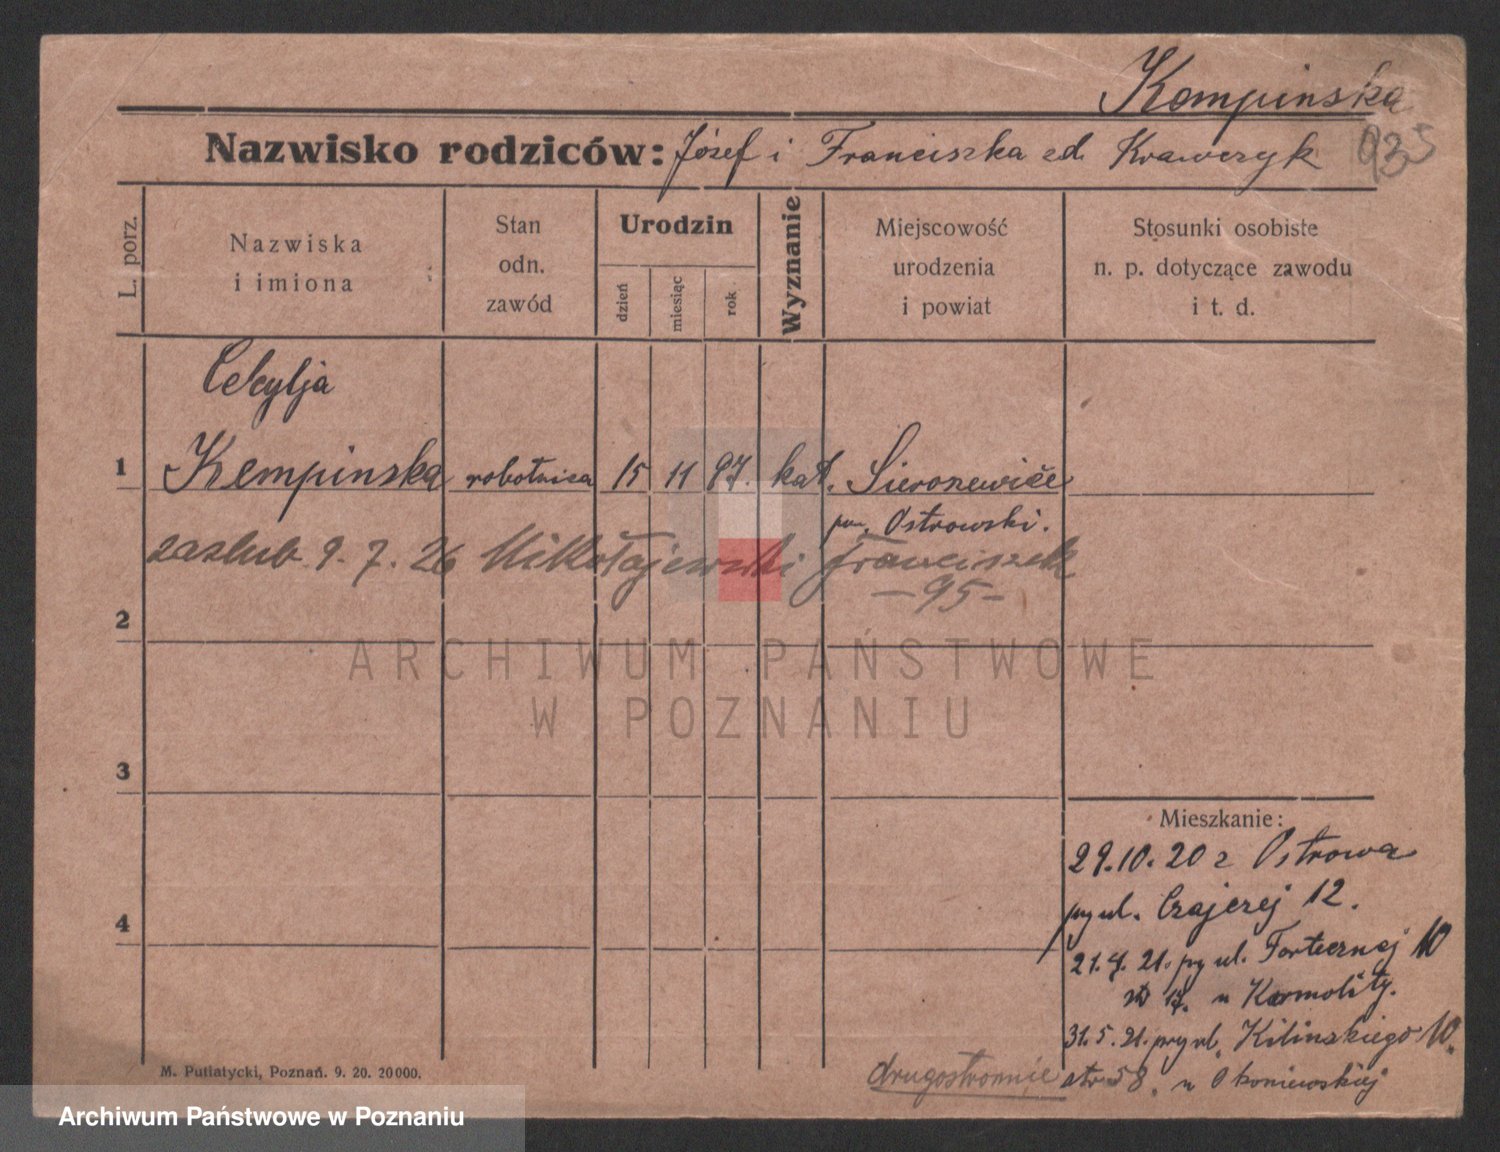 Kempinska
Nazwisko rodziców: Józef i Franciszka zd. Krawczyk 935
L. porz.
Nazwiska
i imiona
Stan
odn.
zawód
Urodzin
dzień
miesiąc
rok
Wyznanie
Miejscowość
urodzenia
i powiat
Stosunki osobiste
n. p. dotyczące zawodu
i t. d.
Cecylja
1 Kempinska robotnica 15 11 97. kat. Sieroszewice
pow. Ostrowski.
zaslub. 9. 7. 26 Mikołajewski Franciszek
— 95 —
2
ARCHIWUM PAŃSTWOWE
W POZNANIU
3
Mieszkanie:
29.10.20 z Ostrowa
przy ul. Czajczej 12.
4
21.4.21. przy ul. Fortecznej 10
str 17. u Karmolity.
31.5.21. przy ul. Kilinskiego 10.
drugostronnie str 58. u Okoniewskiej
M. Putiatycki, Poznań. 9. 20. 20000.
Archiwum Państwowe w Poznaniu